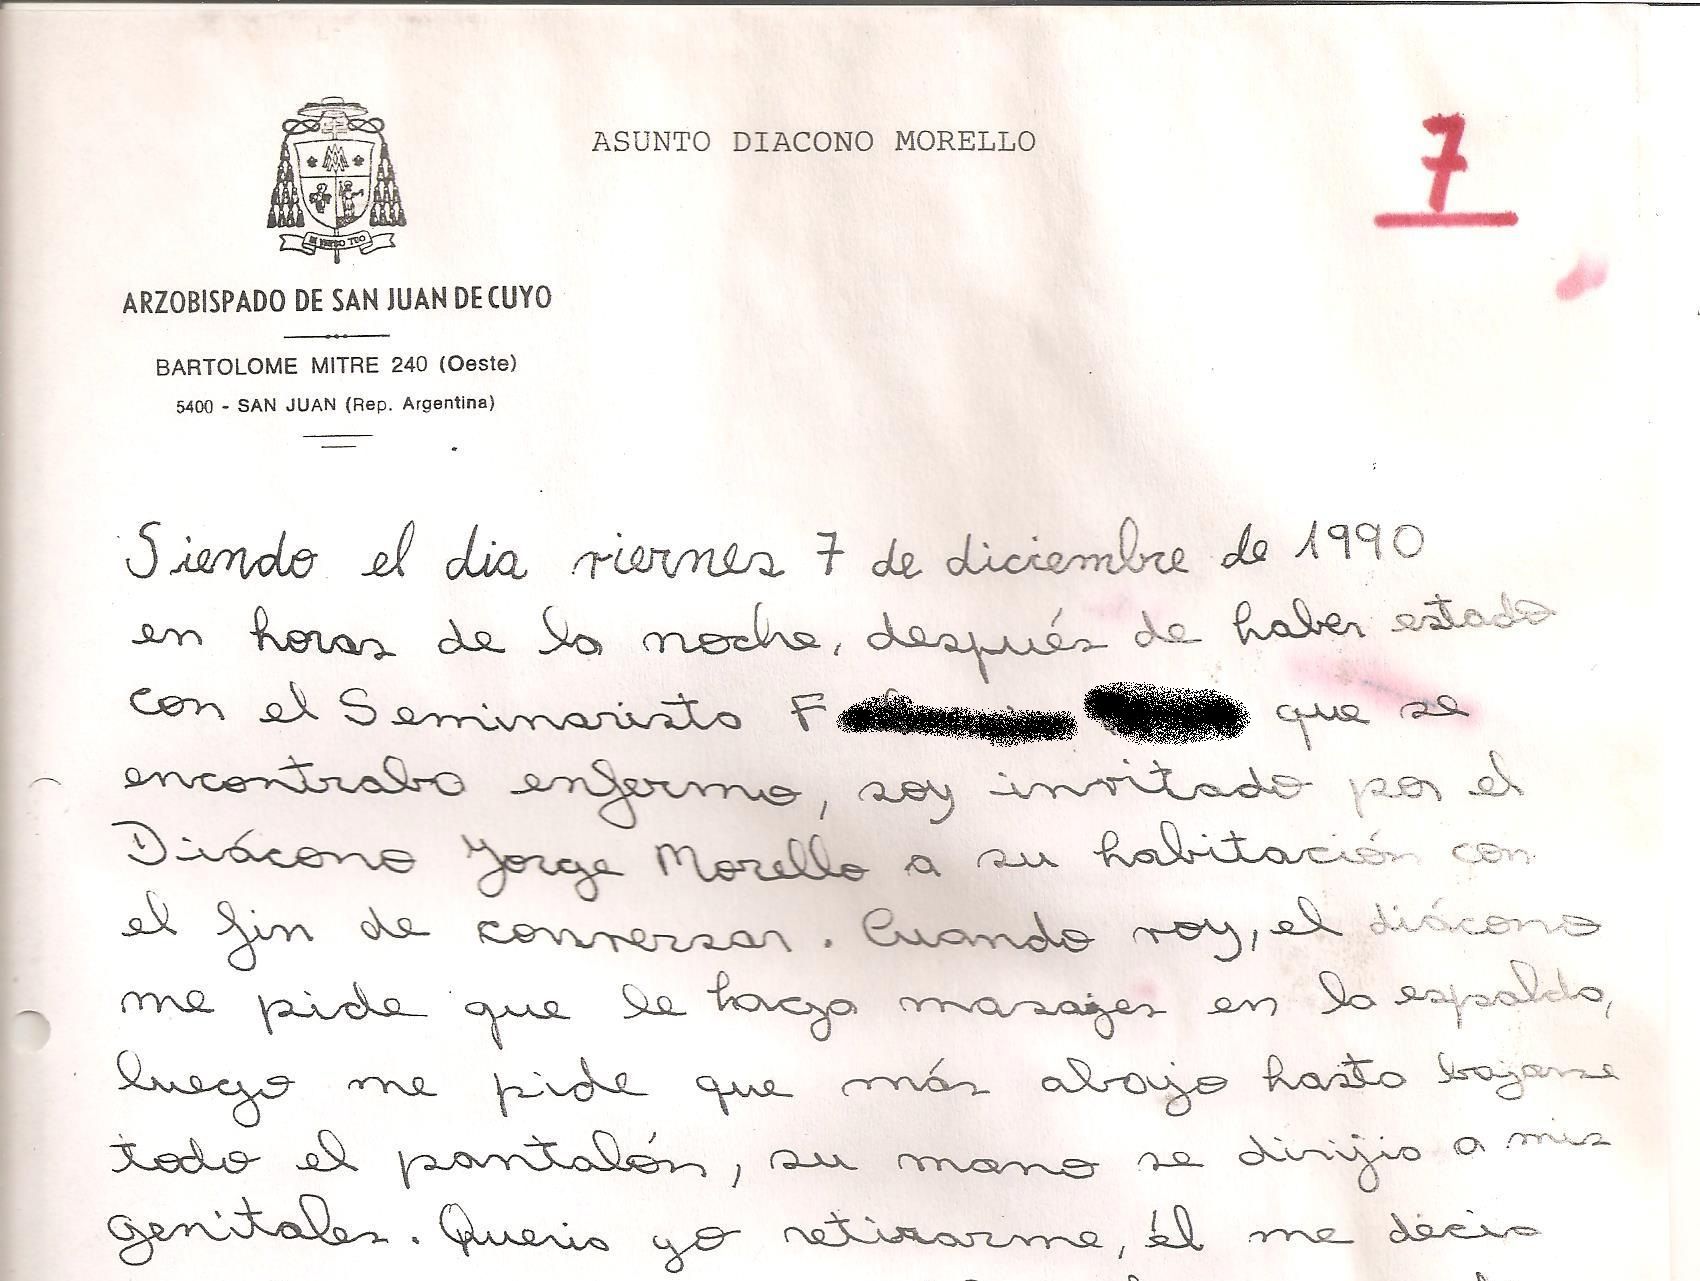 ASUNTO DIACONO MORELLO
7
ARZOBISPADO DE SAN JUAN DE CUYO
BARTOLOME MITRE 240 (Oeste)
5400 - SAN JUAN (Rep. Argentina)
Siendo el dia viernes 7 de diciembre de 1990
en horas de la noche, después de haber estado
con el Seminarista F que se
encontraba enfermo, soy invitado por el
Diácono Jorge Morello a su habitación con
el fin de conversar. Cuando voy, el diácono
me pide que le haga masajes en la espalda,
luego me pide que más abajo hasta bajarse
todo el pantalón, su mano se dirijio a mis
genitales. Queria yo retirarme, él me decia